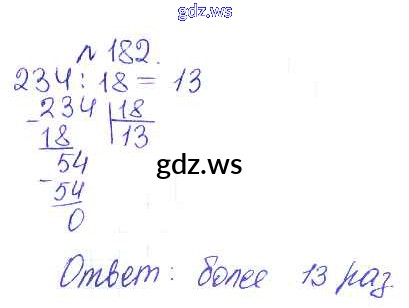 gdz.ws
№ 182.
234 : 18 = 13
- 234 | 18
18 | 13
54
- 54
0
gdz.ws
Ответ: более 13 раз
gdz.ws